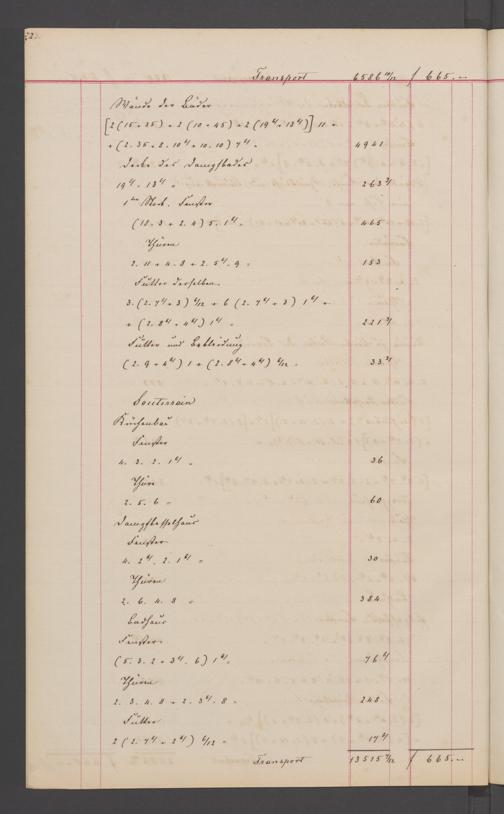 Transport 6586 10/12 f 665.–
Wände der Bäder
[2(15+35)+2(10+45)+2(19 6/+13 6/)] 11 =
+(2.35+2.10 6/+10.10) 7 6/ = 4941
Decke des Dampfbades
19 6/. 13 6/ = 263 3/
1ter Stock. Fenster
(12.3+2.4) 5. 1 6/ = 465
Thüren
2.11+4.8+2.5 6/. 9 = 153
Futter derselben
3.(2.7 6/+3) 6/12 + 6 (2.7 6/+3) 1 6/ +
+(2.8 6/+4 6/) 1 6/ = 221 3/
Futter und Bekleidung
(2.9+4 6/) 1+(2.8 6/+4 6/) 6/12 = 33 3/
Souterrain
Küchenbau
Fenster
4. 3. 2. 1 6/ = 36
Thüre
2. 5. 6 = 60
Dampfkesselhaus
Fenster
4. 2 6/. 2. 1 6/ = 30
Thüren
2. 6. 4. 8 = 384
Badhaus
Fenster
(5.3.2+3 6/. 6) 1 6/ = 76 6/
Thüren
2. 3. 4. 8 + 2. 3 6/. 8 = 248
Futter
2 (2.7 6/+2 6/) 6/12 = 17 6/
Transport 13515 7/12 f 665.–